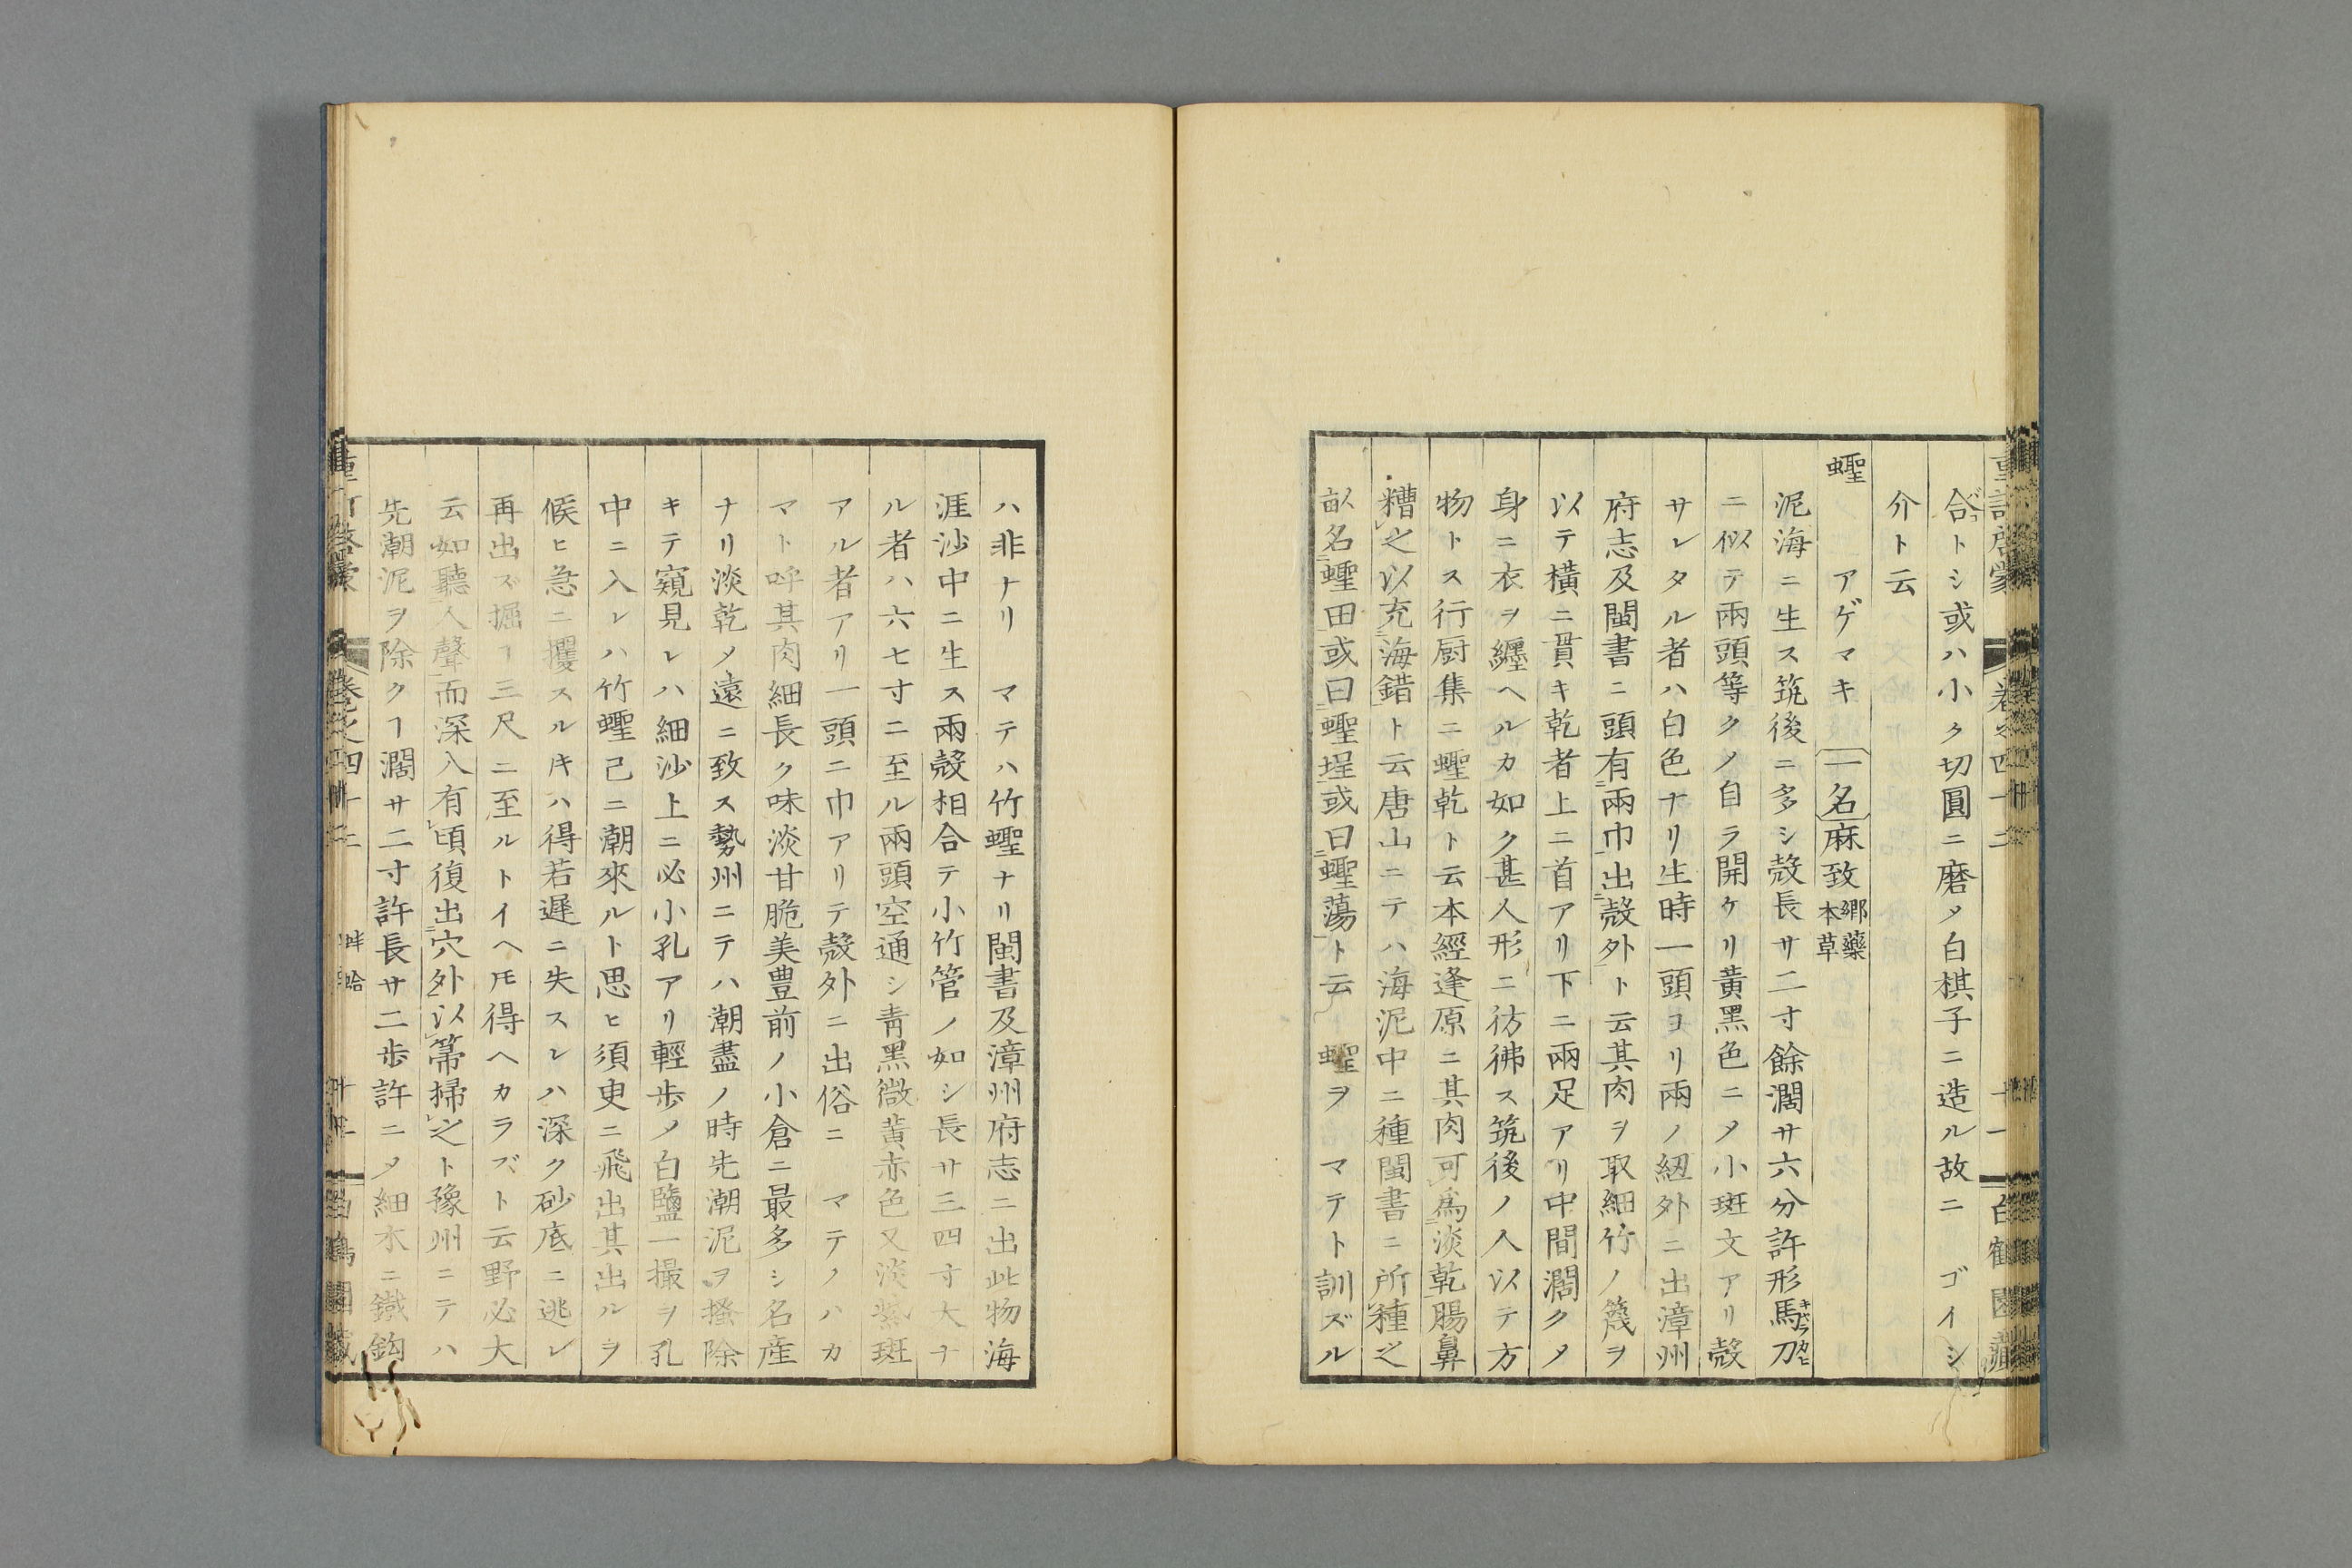 合トシ或ハ小ク切圓ニ磨メ白棋子ニ造ル故ニ ゴイシ
介ト云
蟶 アゲマキ 一名 麻致 郷藥本草
泥海ニ生ス筑後ニ多シ殼長サ二寸餘濶サ六分許形馬刀
ニ似テ兩頭等クノ自ラ開ケリ黄黑色ニメ小斑文アリ殼
サレタル者ハ白色ナリ生時一頭ヨリ兩ノ紐外ニ出漳州
府志及閩書ニ頭有兩巾出殼外ト云其肉ヲ取細竹ノ籤ヲ
以テ横ニ貫キ乾者上ニ首アリ下ニ兩足アリ中間濶クメ
身ニ衣ヲ纏ヘルカ如ク甚人形ニ彷彿ス筑後ノ人以テ方
物トス行厨集ニ蟶乾ト云本經逢原ニ其肉可爲淡乾腸鼻
糟之以充海錯ト云唐山ニテハ海泥中ニ種閩書ニ所種之
畝名蟶田或曰蟶埕或曰蟶蕩ト云 蟶ヲ マテト訓ズル
ハ非ナリ マテハ竹蟶ナリ閩書及漳州府志ニ出此物海
涯沙中ニ生ス兩殼相合テ小竹管ノ如シ長サ三四寸大ナ
ル者ハ六七寸ニ至ル兩頭空通シ青黑微黄赤色又淡紫斑
アル者アリ一頭ニ巾アリテ殼外ニ出俗ニ マテノハカ
マト呼其肉細長ク味淡甘脆美豊前ノ小倉ニ最多シ名産
ナリ淡乾メ遠ニ致ス勢州ニテハ潮盡ノ時先潮泥ヲ搔除
キテ窺見レハ細沙上ニ必小孔アリ輕歩メ白鹽一撮ヲ孔
中ニ入レハ竹蟶己ニ潮來ルト思ヒ須臾ニ飛出其出ルヲ
候ヒ急ニ攫スルキハ得若遲ニ失スレハ深ク砂底ニ逃レ
再出ズ掘ヿ三尺ニ至ルトイヘ𪜈得ヘカラズト云野必大
云如聽人聲而深入有頃復出穴外以箒掃之ト豫州ニテハ
先潮泥ヲ除クヿ濶サ二寸許長サ二歩許ニメ細木ニ鐵鈎